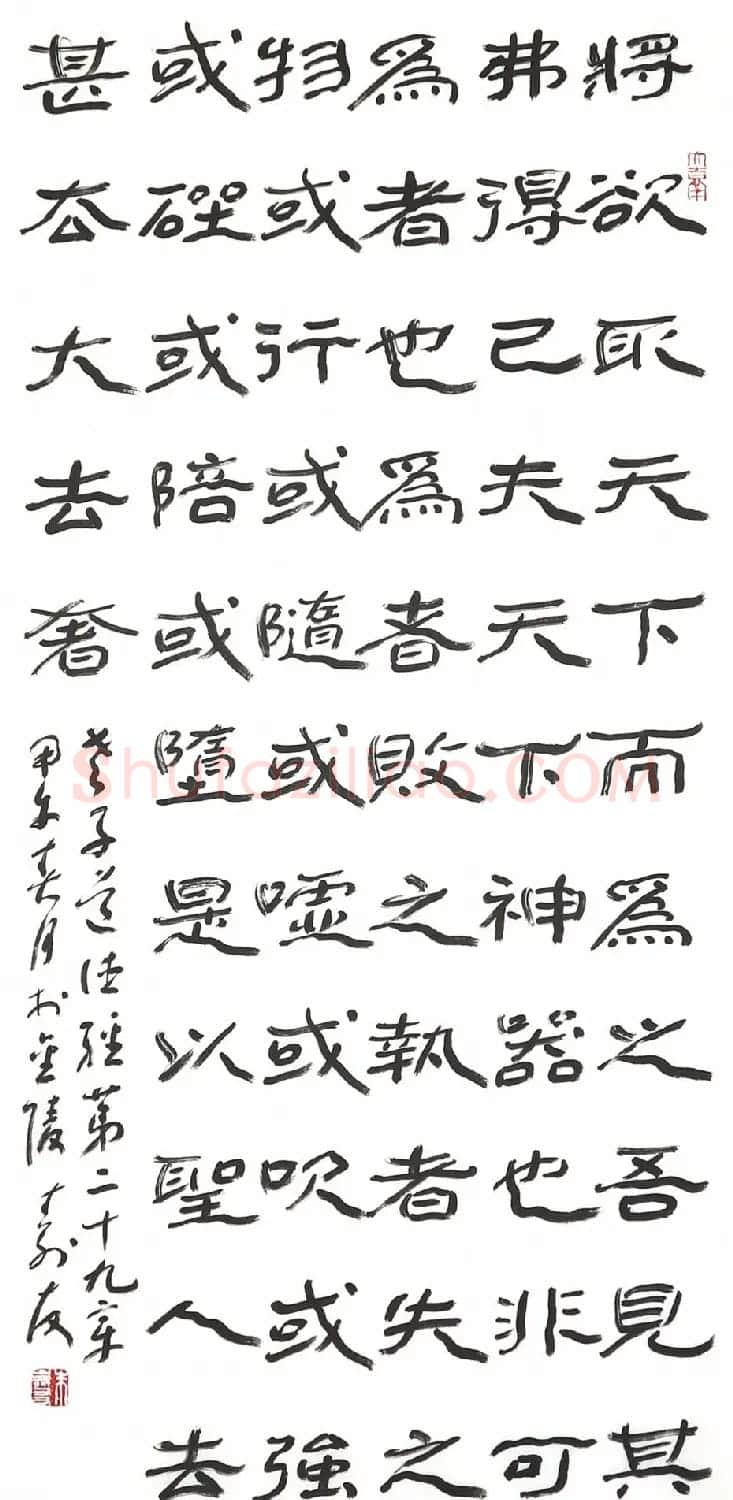 將欲取天下而爲之吾見其
弗得已夫天下神器也非可
爲者也爲者敗之執者失之
物或行或隨或噓或吹或強
或或陪或墮是以聖人去
甚厺大去奢
老子道德經第二十九章
甲午春月於金陵 壽友
Shufaziliao.COM